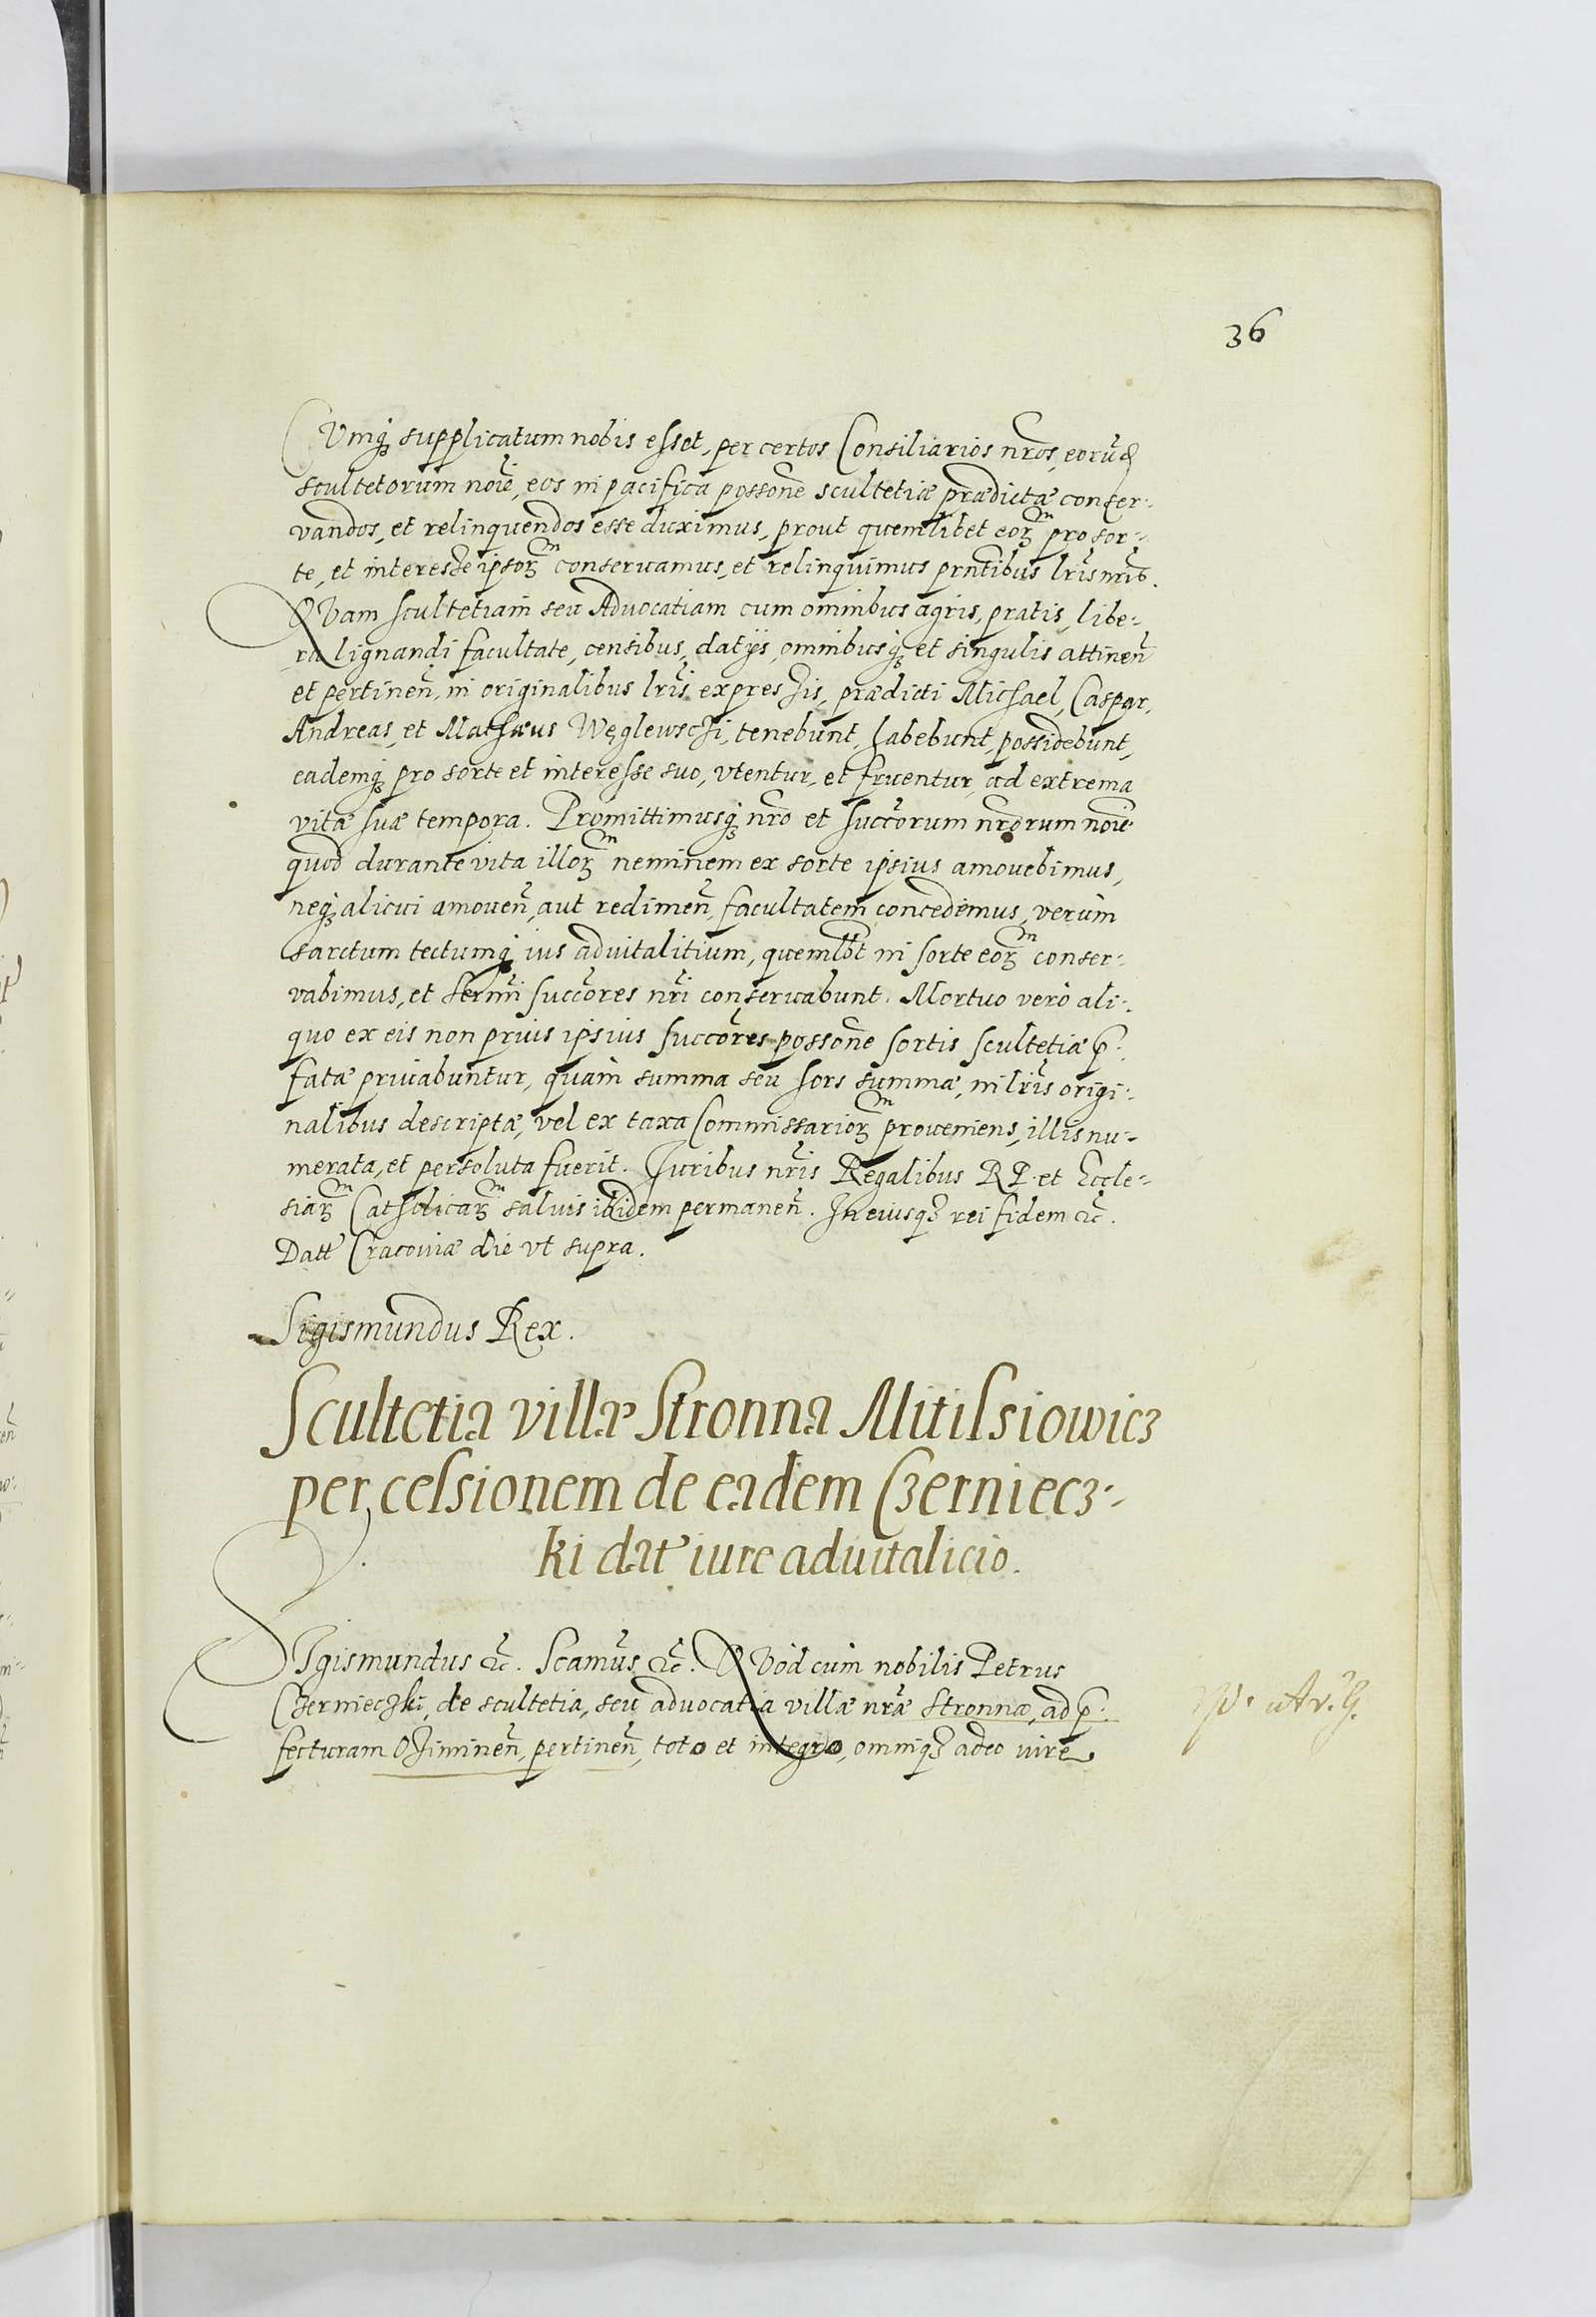 36
CVmq₃ supplicatum nobis esset, per certos Consiliarios nr̃os, eorũd
scultetorum noĩe, eos in pacifica possõne scultetiæ prædictæ conser⹀
vandos, et relinquendos esse duximus, prout quemlibet eoꝝᵐ pro sor⹀
te, et interesse ipsoꝝᵐ conseruamus, et relinquimus prñtibus lr̃is nr̃is.
QVam scultetiam seu Aduocatiam cum omnibus agris, pratis, libe⹀
ra lignandi facultate, censibus, datijs, omnibusq₃ et singulis attineñ
et pertineñ, in originalibus lr̃is expressis, prædicti Michael, Caspar,
Andreas, et Mathæus Węglewschi, tenebunt, habebunt, possidebunt,
eademq₃ pro sorte et interesse suo, vtentur, et fruentur, ad extrema
vitæ suæ tempora. Promittimusq₃ nr̃o et succõrum nr̃orum noĩe
quod durante vita illoꝝᵐ neminem ex sorte ipsius amouebimus,
neq₃ alicui amoueñ, aut redimeñ, facultatem concedemus, verùm
sarctum tectumq₃ ius aduitalitium, quemlbt in sorte eoꝝᵐ conser⹀
vabimus, et serm̃i succõres nr̃i conseruabunt. Mortuo verò ali⹀
quo ex eis non prius ipsius succõres possõne sortis scultetiæ p̱⹀
fatæ priuabuntur, quàm summa seu sors summæ, in lr̃is origi⹀
nalibus descriptæ, vel ex taxa Commissarioꝝᵐ proueniens, illis nu⹀
merata, et persoluta fuerit. Iuribus nr̃is Regalibus RP. et Eccle⹀
siaꝝᵐ Catholicaꝝᵐ saluis ibidem permaneñ. In eiusq₃ rei fidem &c̃.
Datt̃ Cracouiæ die vt supra.
Sigismundus Rex.
Scultetia villæ Stronna Mitilsiowicz
per cessionem de eadem Czerniecz⹀
ki dat̃ iure aduitalicio.
SIgismundus &c̃. Scamũs &c̃. QVòd cùm nobilis Petrus
Czernieczki, de scultetia, seu aduocatia villæ nr̃æ Stronna, ad p̱⹀
fecturam Osimineñ, pertineñ, toto et integro, omniq₃ adeo iure